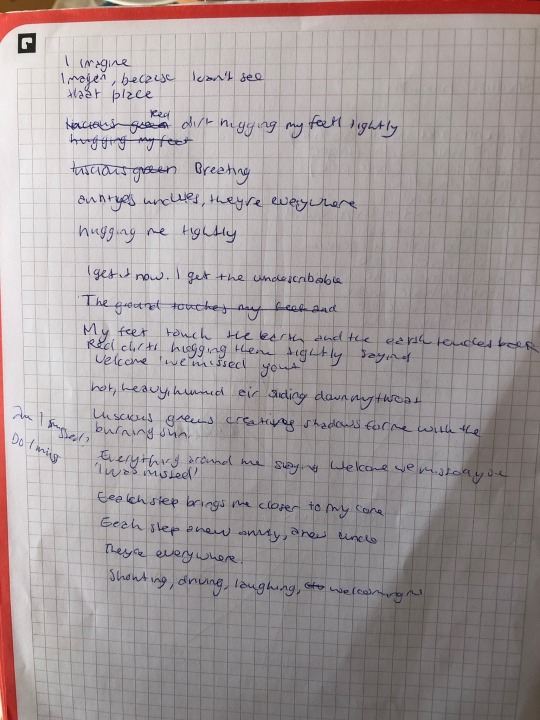 I imagine
Imagen, because I can't see
that place
Red
luscious green dirt hugging my feet tightly
hugging my feet
luscious green Breating
auntyes uncles, they're everywhere
hugging me tightly
I get it now. I get the undescribable
The ground touches my feet and
My feet touch the earth and the earth touches back
Red dirt hugging them tightly saying
Welcome 'we missed you'
hot, heavy, humid air sliding down my throat
Luscious greens creating shadows for me with the
burning sun.
I missed,
Do I miss
Everything around me saying Welcome we missed you
'I was missed'
Each step brings me closer to my core
Each step a new aunty, a new uncle
They're everywhere.
Shouting, driving, laughing, welcoming